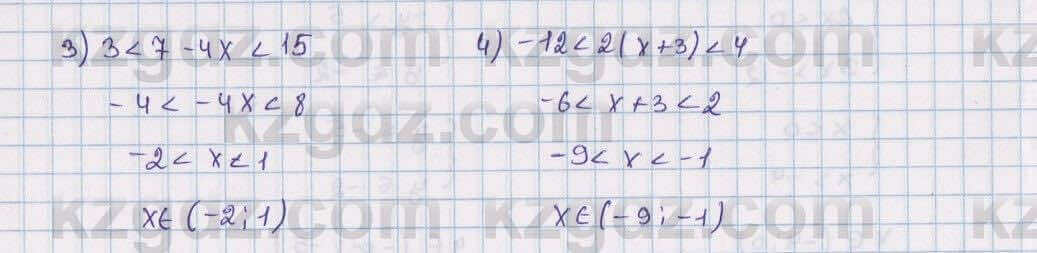 3) 3 < 7 - 4x < 15
-4 < -4x < 8
-2 < x < 1
x ∈ (-2; 1)
4) -12 < 2(x+3) < 4
-6 < x+3 < 2
-9 < x < -1
x ∈ (-9; -1)
kzgaz.com
kzgaz.com
kzgaz.com
kzgaz.com
kzgaz.com